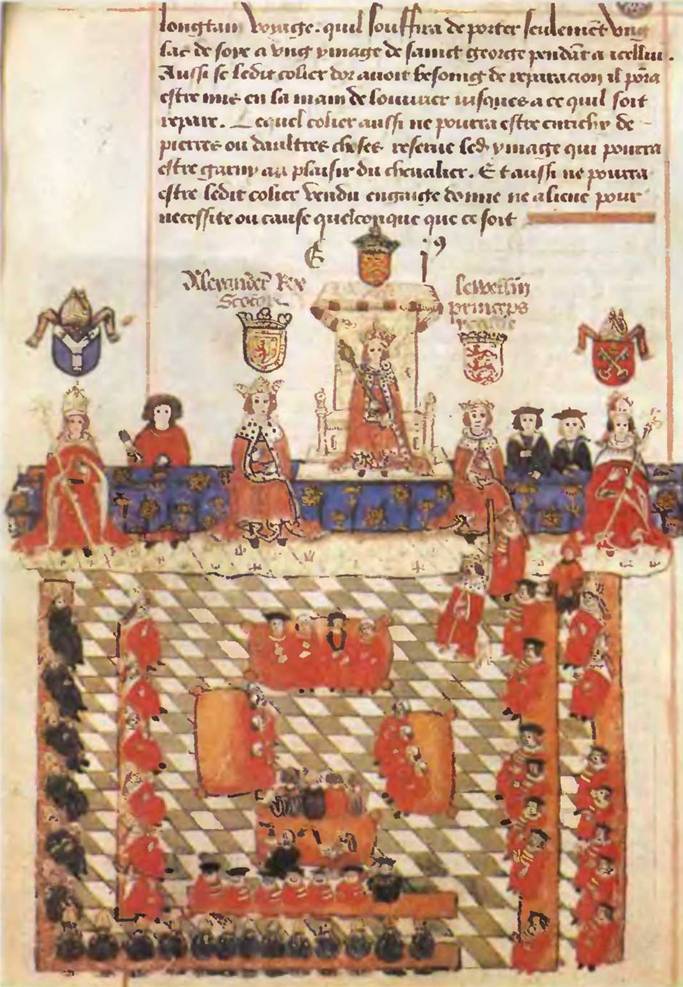 longtain voyage. quil souffira de porter seulemēt vng
lac de soye a vng ymage de sainct george pendāt a icelluy.
Aussi se ledit colier dor auoit besoing de reparacion il pōra
estre mis en la main de louurier iusques a ce quil soit
repare. Lequel colier aussi ne pourra estre enrichy de
pierres ou daultres choses reserue led ymage qui pourra
estre garny au plaisir du cheualier. Et aussi ne pourra
estre ledit colier vendu engaige donne ne aliene pour
necessite ou cause quelconque que ce soit
E i⁹
Alexander Rex lewellin
Scotor princeps